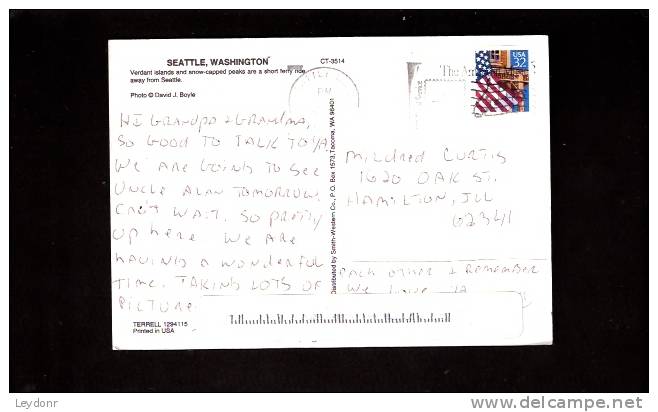 SEATTLE, WASHINGTON
CT-3514
Verdant islands and snow-capped peaks are a short ferry ride
away from Seattle.
Photo © David J. Boyle
PM
The
USA
32
HI GRANDPA & GRANDMA,
SO GOOD TO TALK TO YA.
WE ARE GOING TO SEE
UNCLE ALAN TOMORROW.
CAN'T WAIT. SO PRETTY
UP HERE. WE ARE
HAVING A WONDERFUL
TIME. TAKING LOTS OF
PICTURE
Distributed by Smith-Western Co., P.O. Box 1573, Tacoma, WA 98401
MILDRED CURTIS
1620 OAK ST.
HAMILTON, ILL
62341
EACH OTHER & REMEMBER
WE LOVE YA
TERRELL 1294115
Printed in USA
© Leydonr
delcampe.net